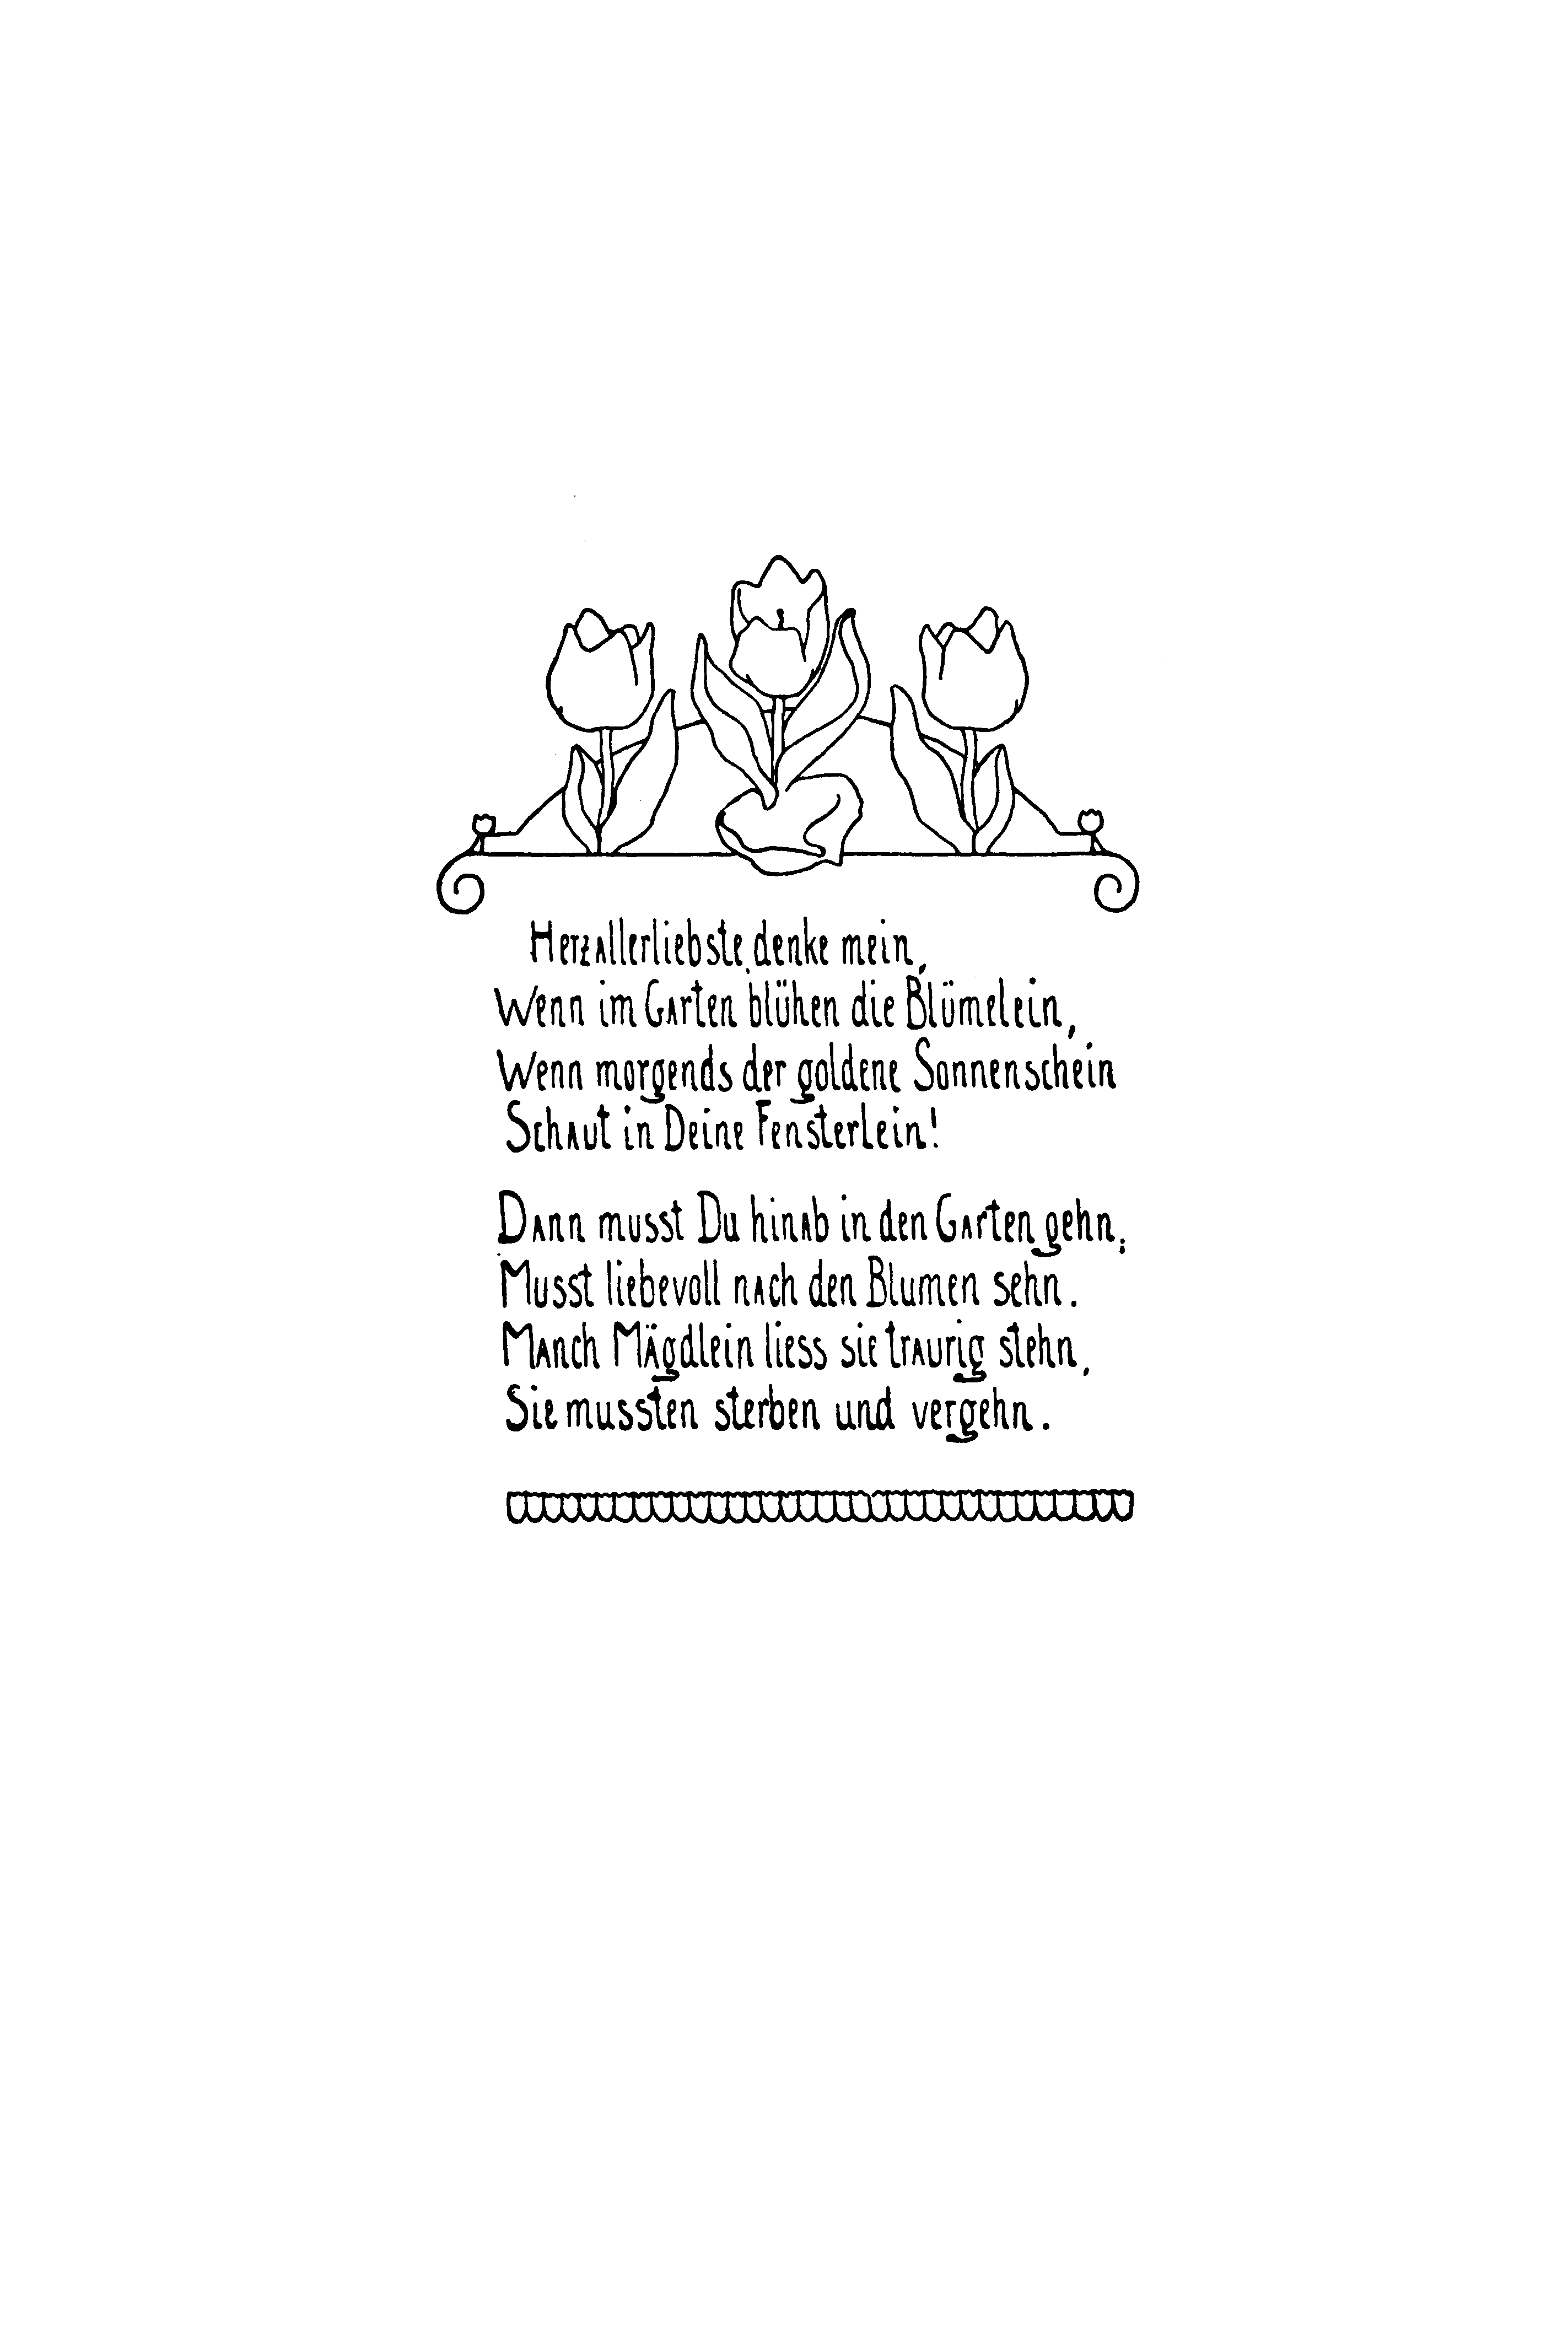 Herzallerliebste, denke mein,
Wenn im Garten blühen die Blümelein,
Wenn morgends der goldene Sonnenschein
Schaut in Deine Fensterlein!
Dann musst Du hinab in den Garten gehn;
Musst liebevoll nach den Blumen sehn.
Manch Mägdlein liess sie traurig stehn,
Sie mussten sterben und vergehn.